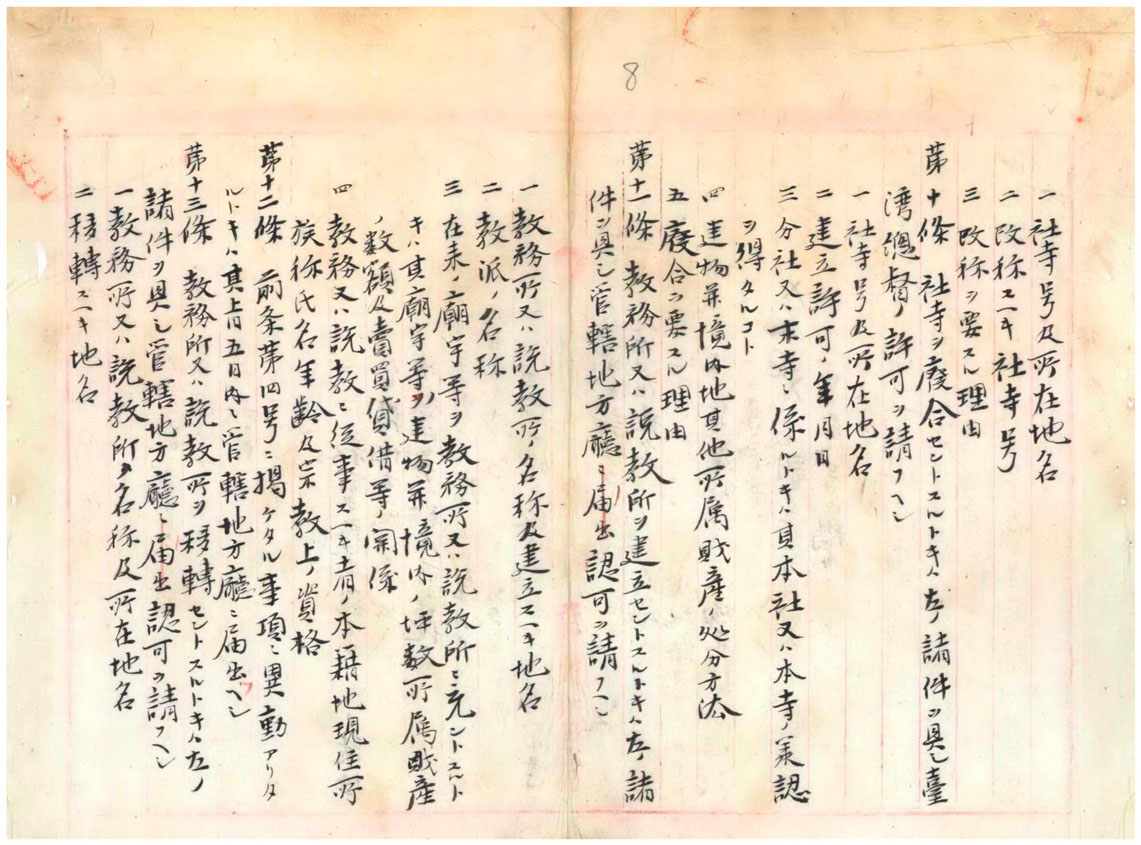 8
一 社寺号及所在地名
二 改称スヘキ社寺号
三 改称ヲ要スル理由
第十條 社寺ヲ廃合セントスルトキハ左ノ諸件ヲ具シ臺
湾總督ノ許可ヲ請フヘシ
一 社寺号及所在地名
二 建立許可ノ年月日
三 分社又ハ末寺ニ係ルトキハ其本社又ハ本寺ノ承認
ヲ得タルコト
四 建物并境内地其他所属財産ノ処分方法
五 廃合ヲ要スル理由
第十一條 教務所又ハ説教所ヲ建立セントスルトキハ左ノ諸
件ヲ具シ管轄地方廳ニ届出認可ヲ請フヘシ
一 教務所又ハ説教所ノ名称及建立スヘキ地名
二 教派ノ名称
三 在来ノ廟宇等ヲ教務所又ハ説教所ニ充ントスルト
キハ其廟宇等ノ建物并境内ノ坪数所属財産
ノ数額及賣買貸借等ノ関係
四 教務又ハ説教ニ従事スヘキ者ノ本籍地現住所
族称氏名年齢及宗教上ノ資格
第十二條 前条第四号ニ掲ケタル事項ニ異動アリタ
ルトキハ其上旨五日内ニ管轄地方廳ニ届出ヘシ
第十三條 教務所又ハ説教所ヲ移轉セントスルトキハ左ノ
諸件ヲ具シ管轄地方廳ニ届出認可ヲ請フヘシ
一 教務所又ハ説教所ノ名称及所在地名
二 移轉スヘキ地名